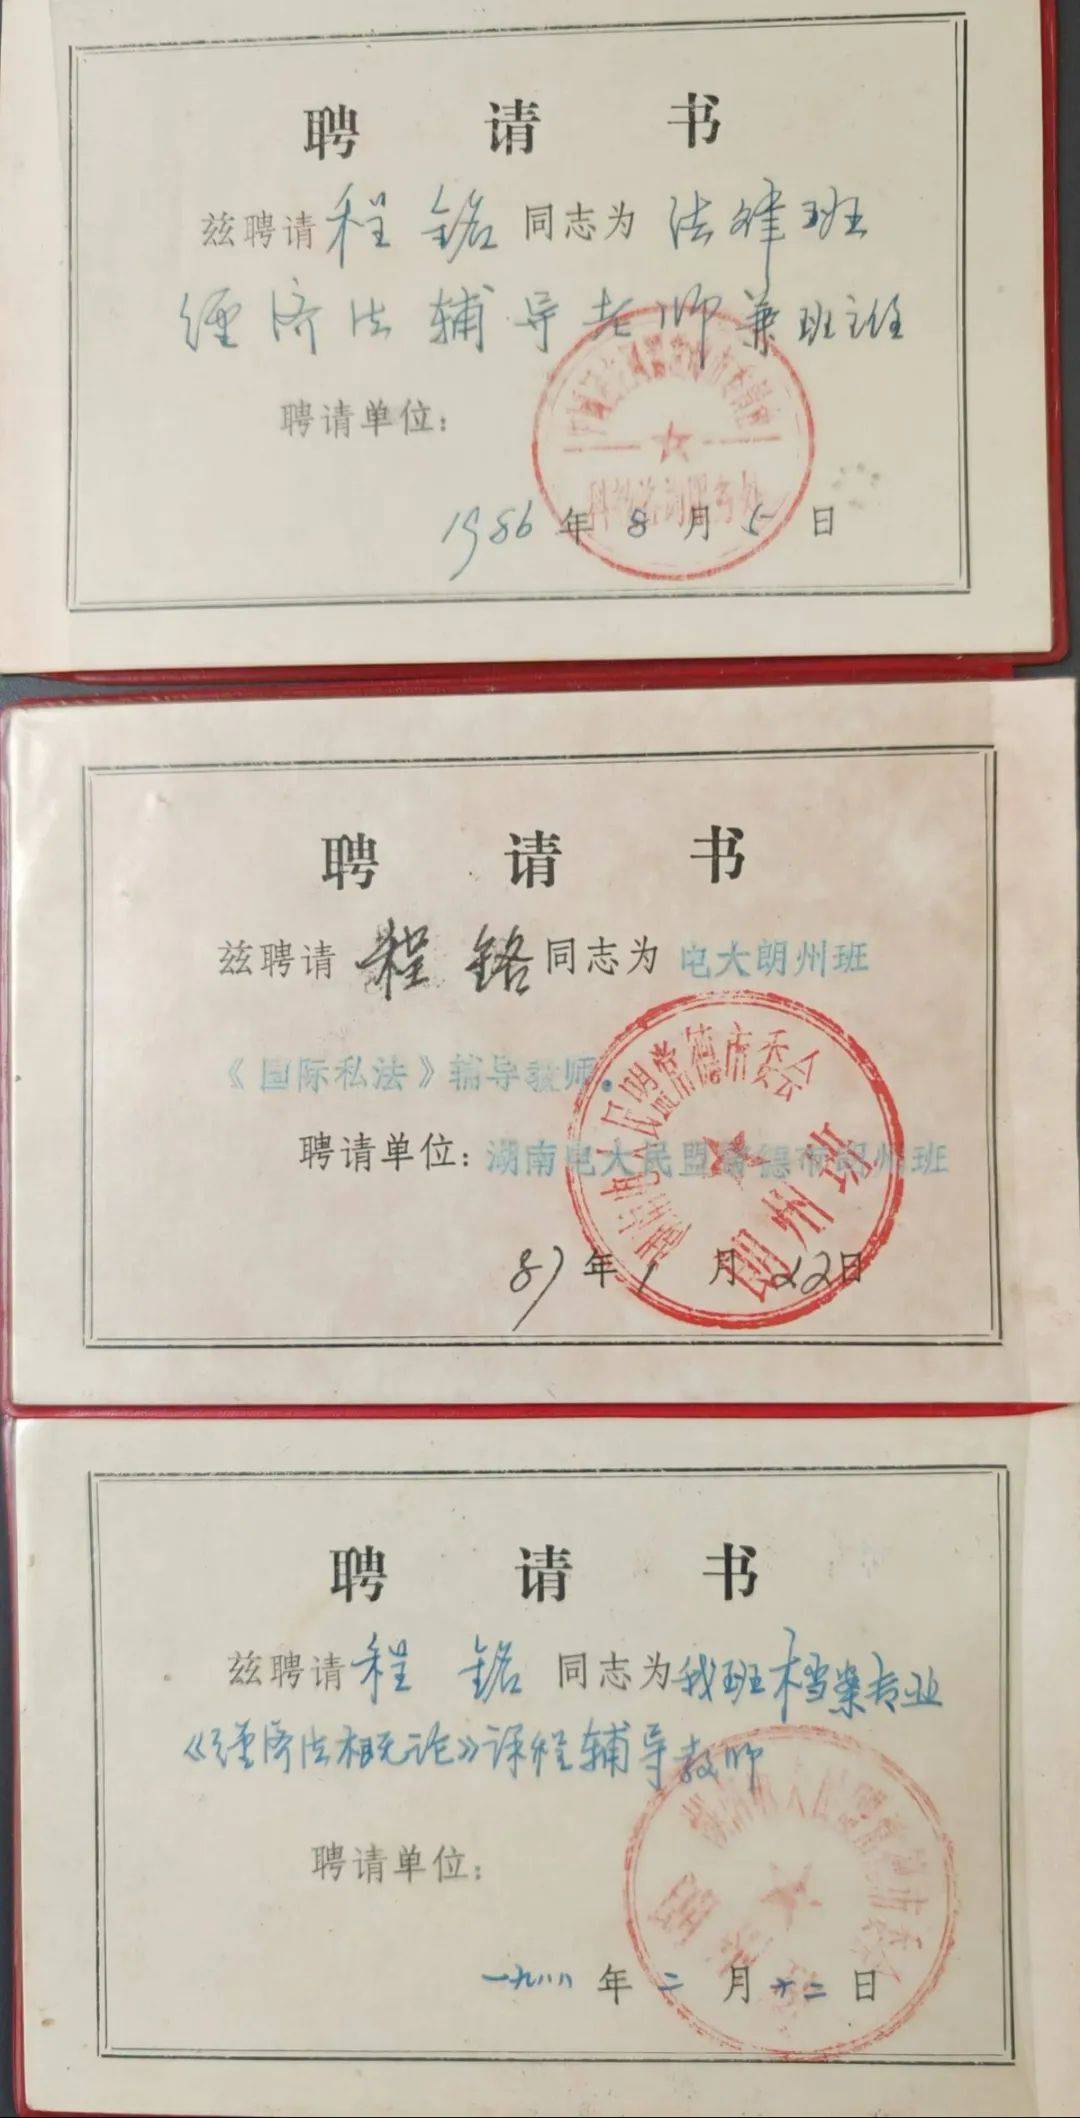 聘请书
兹聘请程铭同志为法律班
经济法辅导老师兼班主任
聘请单位：
科技咨询服务处
1986年8月5日
聘请书
兹聘请程铭同志为电大朗州班
《国际私法》辅导教师。
聘请单位：湖南电大民盟常德市朗州班
湖南电大民盟常德市委会
朗州班
87年1月22日
聘请书
兹聘请程铭同志为我班档案专业
《经济法概论》课程辅导教师
聘请单位：
一九八八年二月十二日